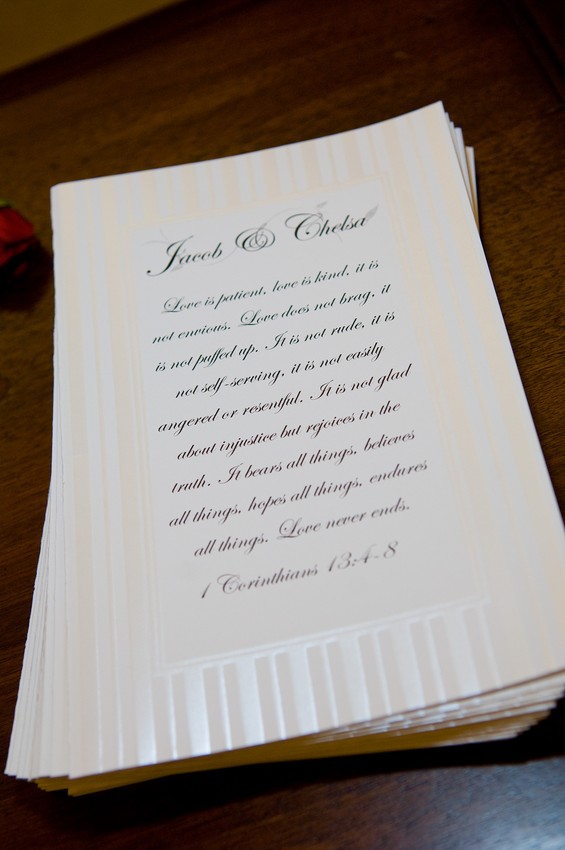 Jacob & Chelsa
Love is patient, love is kind, it is
not envious. Love does not brag, it
is not puffed up. It is not rude, it is
not self-serving, it is not easily
angered or resentful. It is not glad
about injustice but rejoices in the
truth. It bears all things, believes
all things, hopes all things, endures
all things. Love never ends.
1 Corinthians 13:4-8